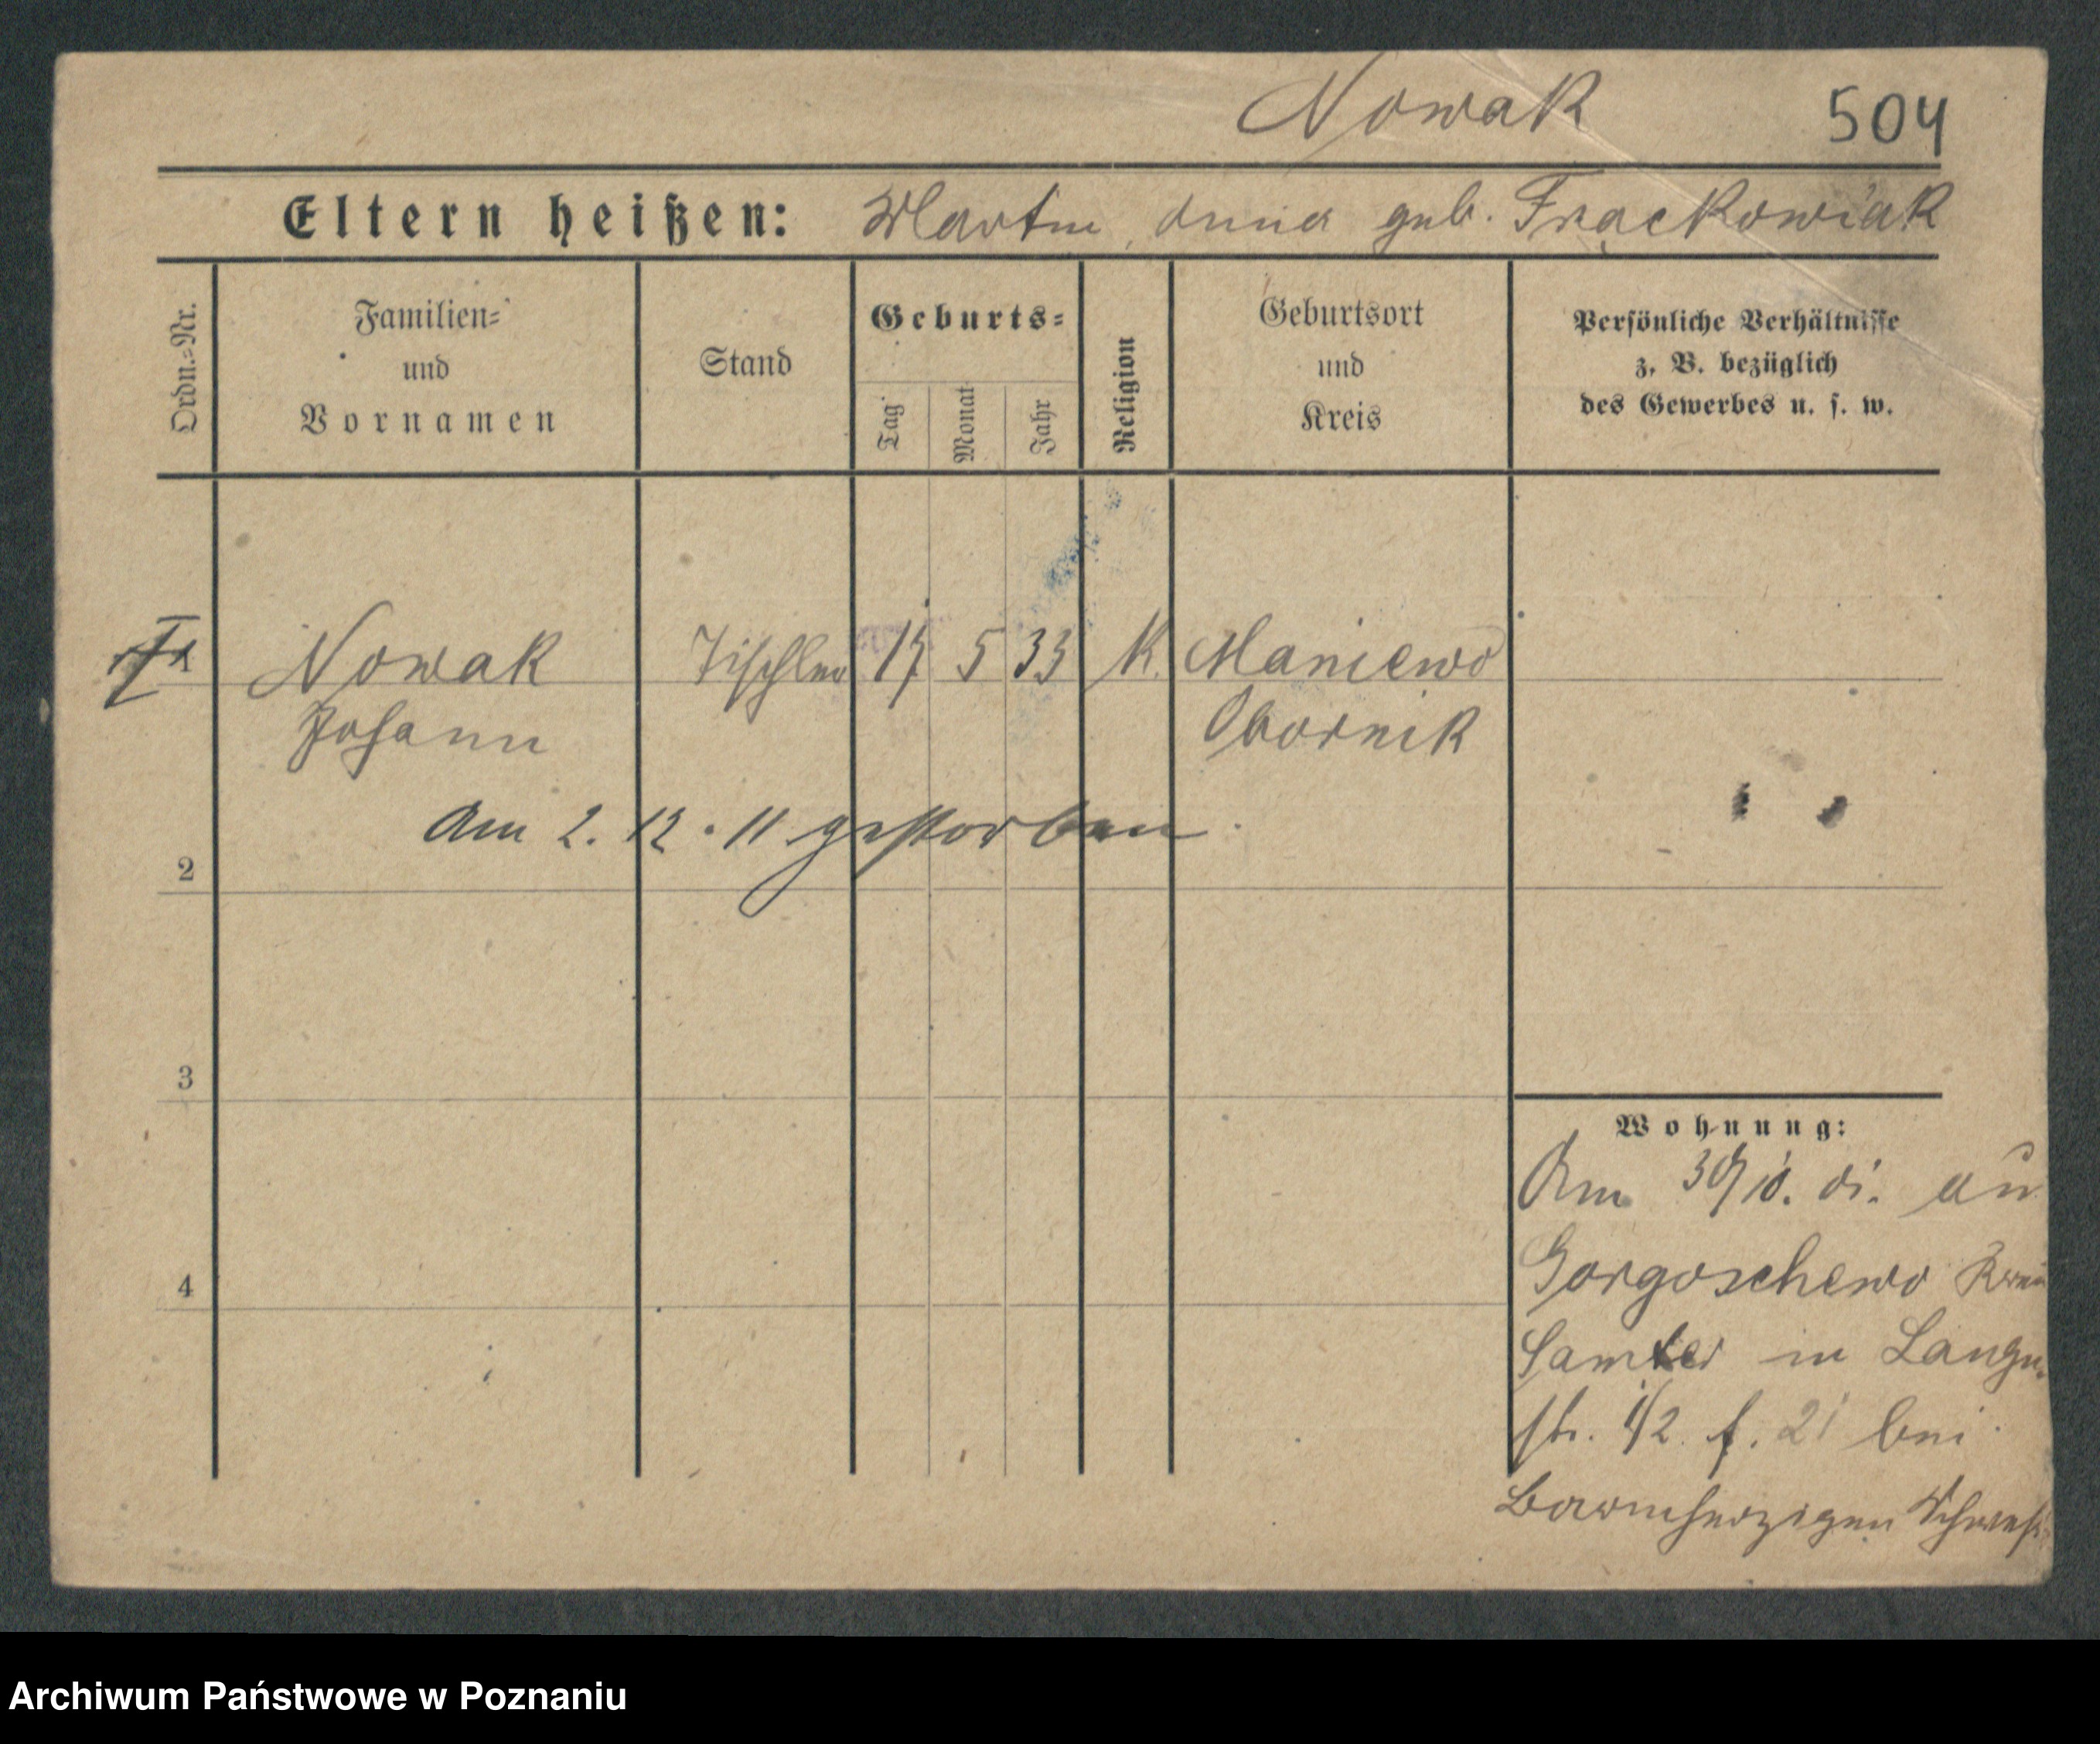 Nowak 504
Eltern heißen: Martin, Anna geb. Frąckowiak
Ordn.=Nr.
Familien=
und
Vornamen
Stand
Geburts=
Tag
Monat
Jahr
Religion
Geburtsort
und
Kreis
Persönliche Verhältnisse
z. B. bezüglich
des Gewerbes u. s. w.
Nowak Tischler 17 5 33 K. Maniewo
Johann Obornik
Am 2. 12. 11 gestorben.
2
3
4
Wohnung:
Am 30/10.
Gorgoschewo Kreis
Samter in Lange
str. 1/2 f. 21 bei
Barmherzigen Schwest
Archiwum Państwowe w Poznaniu